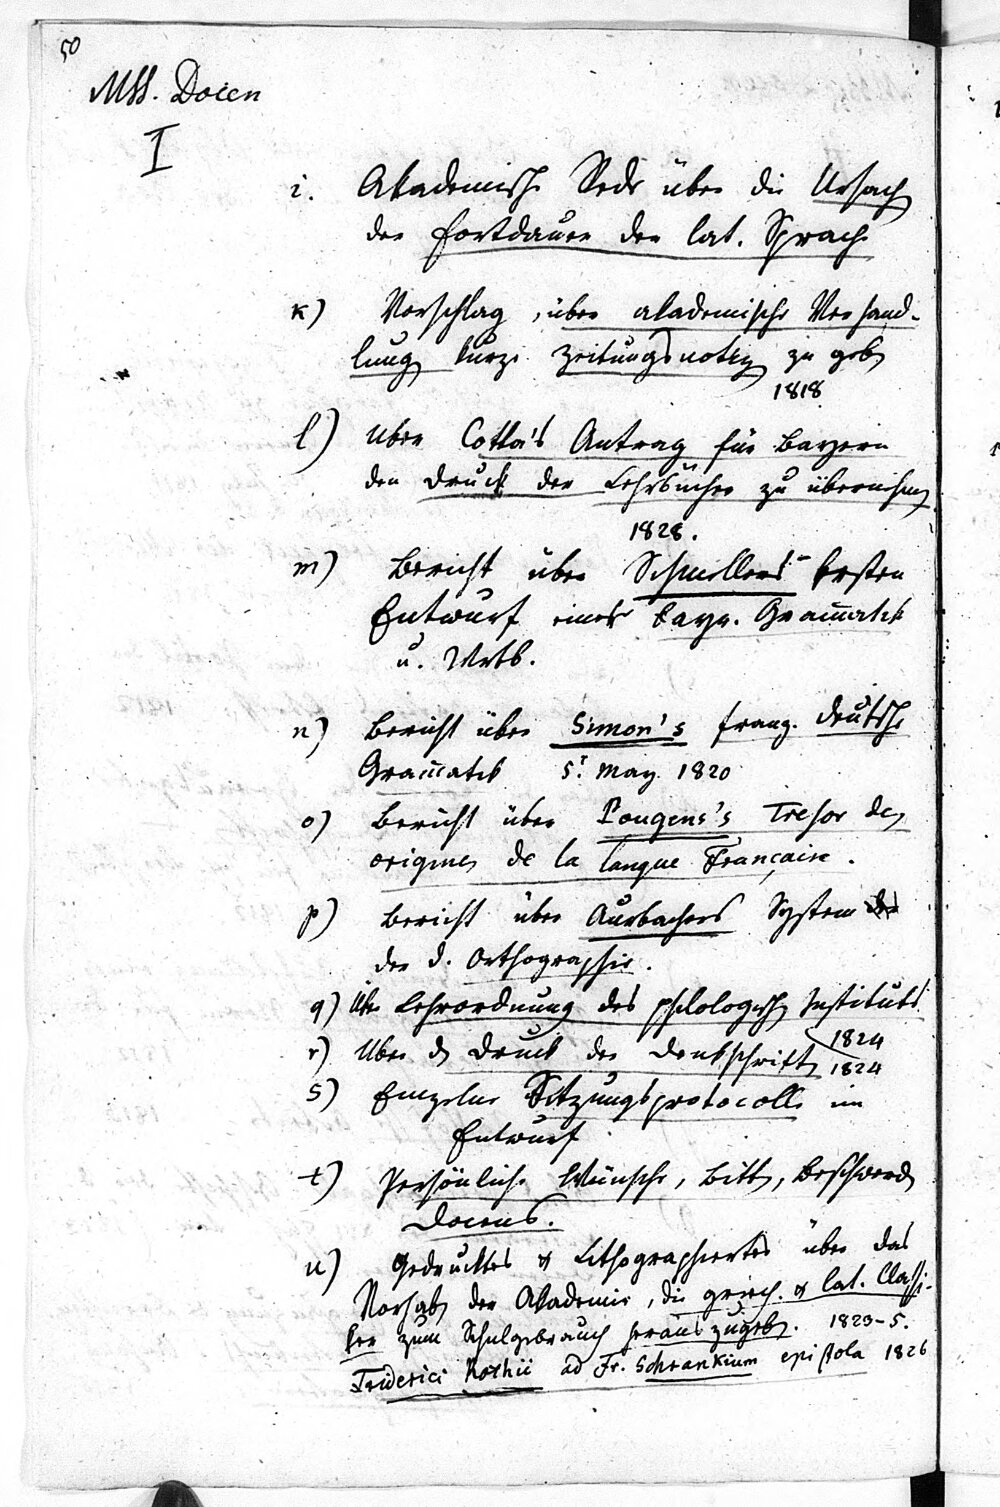 50
MSS. Docen
I
i. Akademische Rede über die Ursachen
der Fortdauer der lat. Sprache
k) Vorschlag, über akademische Verhand-
lungen kurze Zeitungsnotizen zu geben
1818
l) Über Cotta's Antrag für Bayern
den Druck der Lehrbücher zu übernehmen
1828.
m) Bericht über Schmellers ersten
Entwurf einer bayr. Gram̄atik
u. Wrtb.
n) Bericht über Simon's franz. deutsche
Gram̄atik 5t. May 1820
o) Bericht über Pougens's Tresor des
origines de la langue Française.
p) Bericht über Aurbachers System
der d. Orthographie.
q) Über Lehrordnung des philologischen Instituts
1824
r) Über den Druck der Denkschriften 1824
s) Einzelne Sitzungsprotocolle im
Entwurf
t) Persönliche Wünsche, Bitten, Beschwerden
Docens.
u) Gedrucktes & Lithographiertes über das
Vorhaben der Akademie, die griech. & lat. Classi-
ker zum Schulgebrauch herauszugeben. 1823-5.
Friderici Rothii ad Fr. Schrankium epistola 1826